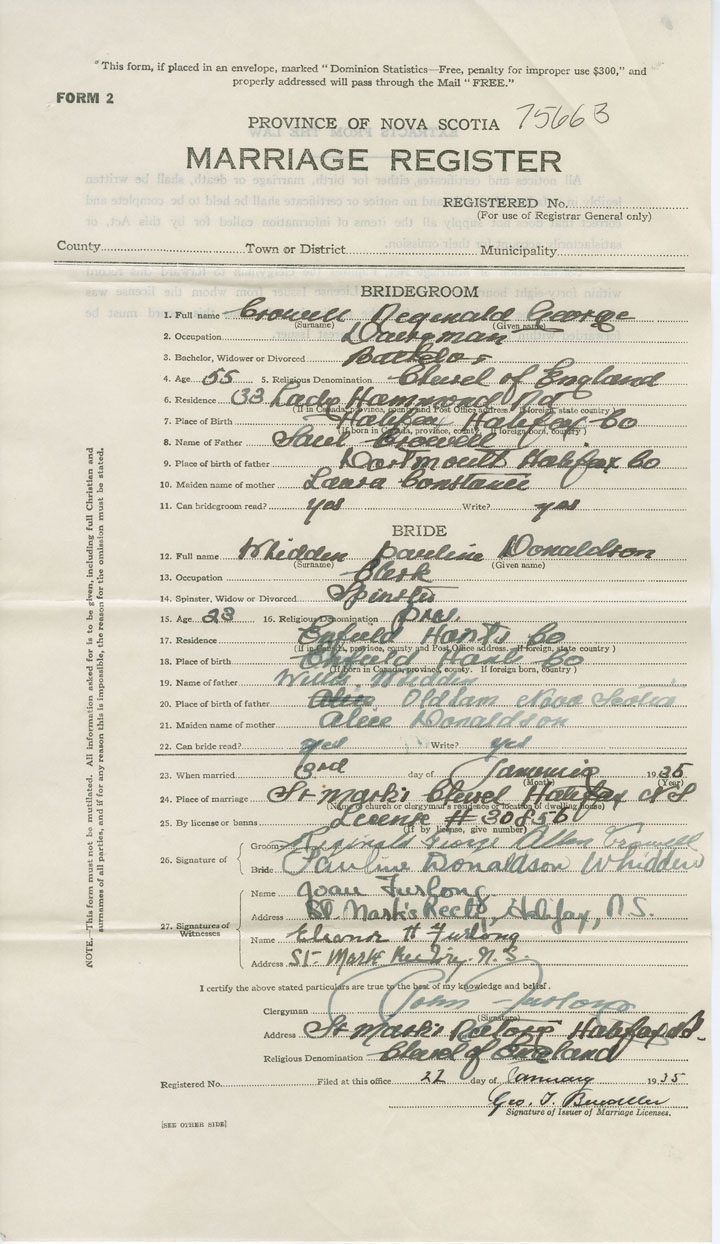 "This form, if placed in an envelope, marked "Dominion Statistics—Free, penalty for improper use $300," and
properly addressed will pass through the Mail "FREE."
FORM 2
PROVINCE OF NOVA SCOTIA 75663
MARRIAGE REGISTER
REGISTERED No.
(For use of Registrar General only)
County Town or District Municipality
BRIDEGROOM
1. Full name Crowell Reginald George
(Surname) (Given name)
2. Occupation
3. Bachelor, Widower or Divorced Bachelor
4. Age 55 5. Religious Denomination Church of England
6. Residence 33 Lady Hammond Rd
(If in Canada, province, county and Post Office address. If foreign, state country)
7. Place of Birth Halifax Halifax Co
(If born in Canada, province, county. If foreign born, country)
8. Name of Father Crowell
9. Place of birth of father Dartmouth Halifax Co
10. Maiden name of mother Laura Constance
11. Can bridegroom read? yes Write? yes
BRIDE
12. Full name Whidden Pauline Donaldson
(Surname) (Given name)
13. Occupation Clerk
14. Spinster, Widow or Divorced Spinster
15. Age 23 16. Religious Denomination Pres.
17. Residence Enfield Hants Co
(If in Canada, province, county and Post Office address. If foreign, state country)
18. Place of birth Enfield Hants Co
(If born in Canada, province, county. If foreign born, country)
19. Name of father Whidden
20. Place of birth of father Oldham Nova Scotia
21. Maiden name of mother Alice Donaldson
22. Can bride read? yes Write? yes
23. When married 3rd day of January 1935
(Month) (Year)
24. Place of marriage St Mark's Church Halifax N S
(Name of church or clergyman's residence or location of dwelling house)
25. By license or banns License # 30856
(If by license, give number)
26. Signature of
Groom Reginald George Allen Crowell
Bride Pauline Donaldson Whidden
27. Signatures of Witnesses
Name Joan Furlong
Address St. Mark's Recty, Halifax, N.S.
Name Eleanor H Furlong
Address St. Mark Rectory. N.S.
I certify the above stated particulars are true to the best of my knowledge and belief.
Clergyman John Furlong
(Signature)
Address St Mark's Rectory Halifax N.S.
Religious Denomination Church of England
Registered No. Filed at this office 21 day of January 1935
Geo. T.
Signature of Issuer of Marriage Licenses.
[SEE OTHER SIDE]
NOTE.—This form must not be mutilated. All information asked for is to be given, including full Christian and
surnames of all parties, and if for any reason this is impossible, the reason for the omission must be stated.